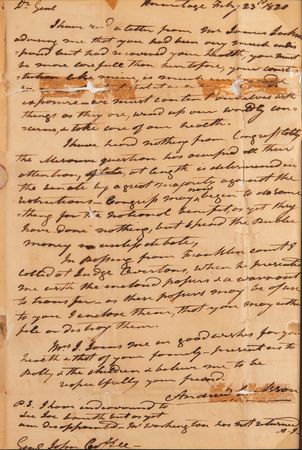 Dr Genl Hermitage Feby 23rd 1820
I have recd a letter from Mr James Jackson
advising me that you had been very much indis-
posed but had recovered your health, you must
be more careful than heretofore, your consti-
tution like mine, is much
exposure – we must content ourselves with
things as they are, wind up our worldly con-
cerns, & take care of our health.
I have heard nothing from Congress lately
the Missouri question has occupied all their
attention, of late, at length is determined in
the Senate by a great majority against the
restrictions, Congress may now begin to do some
thing for the national benefit, as yet they
have done nothing, but spend the Public
money in useless debate,
In passing from Franklin county I
called at Judge Overtons, when he presented
me with the enclosed papers & a warrant
to transfer. as these papers may be of use
to you, I enclose them, that you may either
file or destroy them.
Mrs. J. Joins me in good wishes for yr
health & that of your family – present us to
Polly & the children & believe me to be
respectfully your friend
Andrew Jackson
P.S. I have endeavoured to
see Joe Smith but as yet
am disappointed. Mr Worthington has not returned
A.J.
Genl John Coffee –